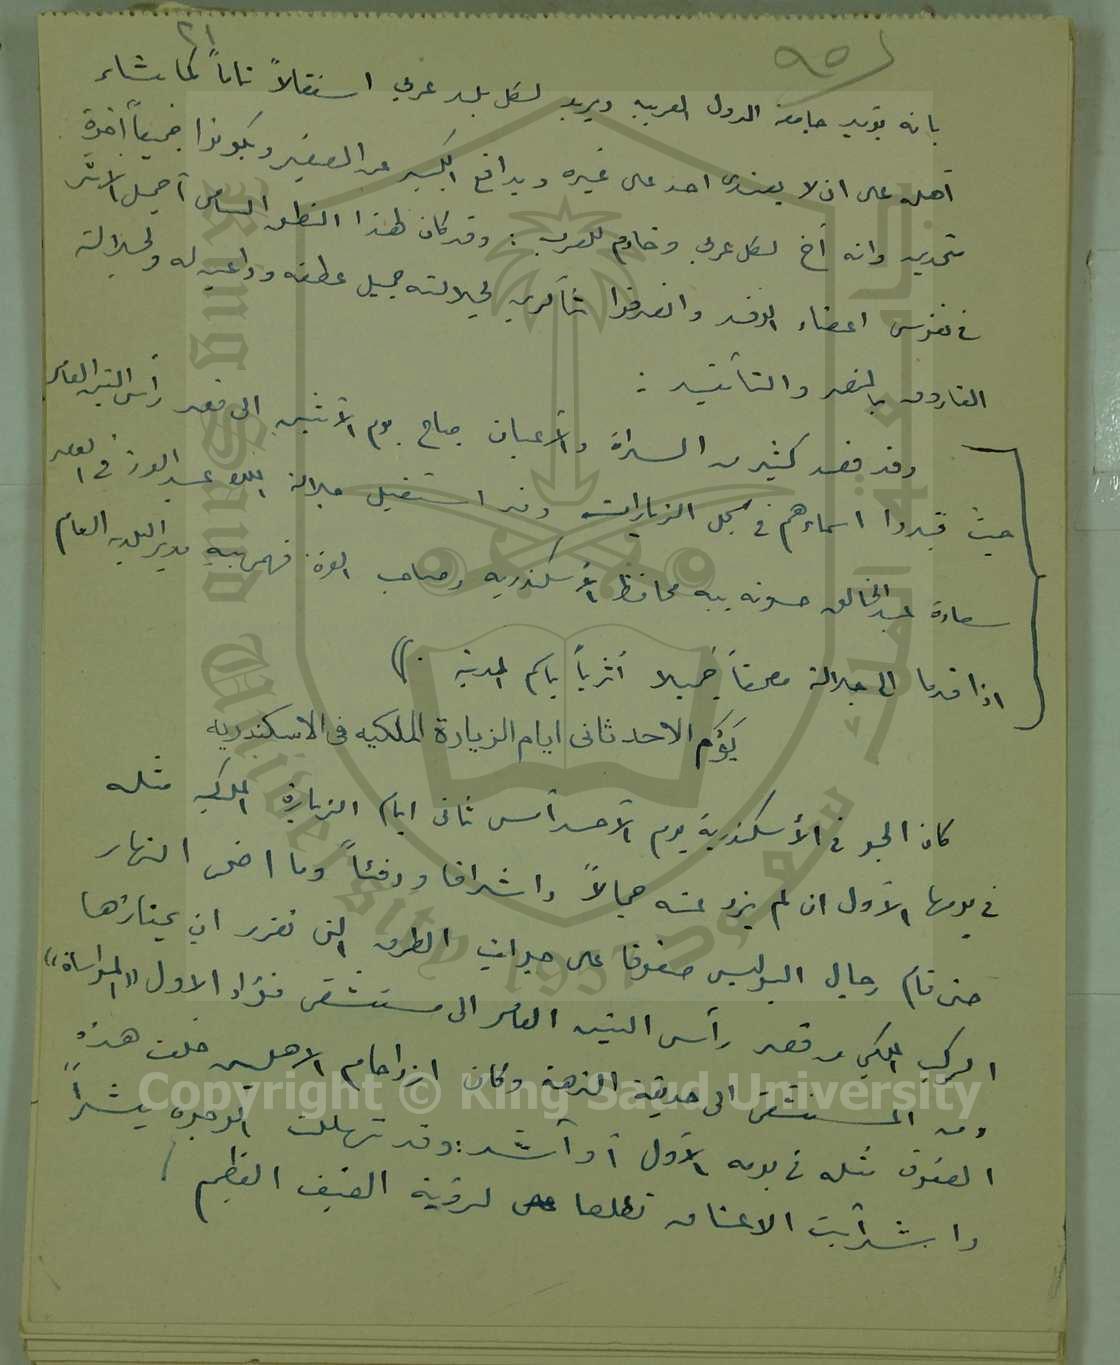 ٢١
بانه يؤيد جامعة الدول العربيه ويريد لكل بلد عربي استقلالاً تاماً كما يشاء
أهله على ان لا يعتدى احد على غيره ويدافع الكبير عن الصغير ويكونوا جميعاً أخوة
متحدين وانه أخ لكل عربي وخادم للعرب : وقد كان لهذا النطق السامى أجمل الأثر
في نفوس اعضاء الوفد وانصرفوا شاكرين لجلالته جميل عطفه وداعين له ولجلالة
الفاروق بالنصر والتأييد :
وقد قصد كثير من السراة والأعيان صباح يوم الأثنين الى قصر رأس التين العامر
حيث قيدوا اسماءهم في سجل الزيارات وقد استقبل جلالة الملك عبد العزيز في القصر
سعادة عبد الخالق حسونه بيه محافظ الأسكندريه وصاحب العزة فهمى بيه مدير البلديه العام
اذ قدما الى جلالة مصحفاً جميلا أثرياً باسم المدينة . ))
يَوُم الاحد ثانى ايام الزيارة الملكيه فى الاسكندريه
كان الجو في الأسكندرية يوم الأحد أمس ثانى ايام الزيارة الملكيه مثله
في يومها الأول ان لم يزد عنه جمالاً واشراقا ودفئاً وما اضحى النهار
حتى قام رجال البوليس صفوفا على جوانب الطرق التى تقرر ان يجتازها
الركب الملكي من قصر رأس التين العامر الى مستشفى فؤاد الاول "المواساة"
ومن المستشفى الى حديقة النزهة وكان ازدحام الاهلين خلف هذه
الصفوف مثله في يومه الأول أو أشد : وقد تهللت الوجوه بشراً
واشرأبت الاعناق تطلعا لرؤية الضيف العظيم /
King Saud University
1957
جامعة الملك سعود
Copyright © King Saud University